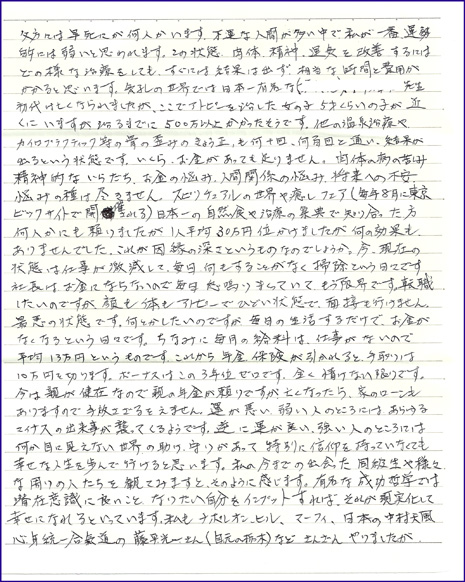 父方には早死にが何人かいます。不運な人間が多い中で私が一番運勢
的には弱いと思われます。この状態、肉体、精神、運気を改善するには
どの様な治療をしても、すぐには結果は出ず、相当な時間と費用が
かかると思います。気孔の世界では日本一有名な(
初代は亡くなられましたが、ここでアトピーを治した女の子が近
くにいますが治るまでに500万以上かかったそうです。他の温泉治療や
カイロプラクティック等の骨の歪みのきょう正も何十回、何百回と通い、結果が
出るという状態です。いくら、お金があっても足りません。肉体の病の苦しみ
精神的ないらだち、お金の悩み、人間関係の悩み、将来への不安
悩みの種は尽きません。スピリチュアルの世界や癒しフェア(毎年8月に東京
ビックサイトで開催される)日本一の自然食や治療の祭典で知り合った方
何人かにも頼りましたが1人平均30万円位かけましたが何の効果も
ありませんでした。これが因縁の深さというものなのでしょうか。今、現在の
状態は仕事が激減して、毎日何もすることがなく掃除という日々です
社長はお金にならないので毎日怒鳴りまくっていて、もう限界です。転職
したいのですが顔も体もアトピーでひどい状態で、面接も行けません。
最悪の状態です。何とかしたいのですが毎日の生活するだけで、お金が
なくなるという日々です。ちなみに毎月の給料は、仕事がないので
平均13万円というものです。これから年金保険が引かれると、手取りは
10万円を切ります。ボーナスはこの3年位ゼロです。全く情けない限りです。
今は親が健在なので親の年金が頼りですが亡くなったら、家のローンも
ありますので手放さざるをえません。運が悪い、弱い人のところにはあらゆる
マイナスの出来事が襲ってくるようです。逆に運が良い、強い人のところには
何か目に見えない世界の助け、守りがあって特別に信仰を持っていなくても
幸せな人生を歩んで行けると思います。私の今までの出会った同級生や様々
な周りの人たちを観てみますと、そのように感じます。有名な成功哲学では
潜在意識に良いこと、なりたい自分をインプットすれば、それが現実化して
幸せになれるといっています。私も、ナポレオン・ヒル、マーフィ、日本の中村天風
心身統一合気道の藤平光一さん(自元の栃木)など、さんざんやりましたが